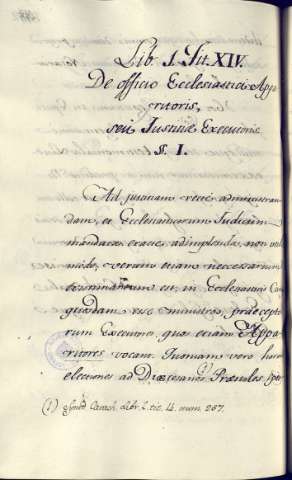 Lib. 1. Tit. XIV.
De officio Ecclesiastici Appa
ritoris,
seu Justitiæ Executoris
§. I.
Ad justitiam recte administran
dam, et Ecclesiasticorum Judicum
mandata exacte adimplenda, non uti
modo, verum etiam necessarium
est, in Ecclesiastica
quosdam esse ministros, præcepto
rum Executores, quos etiam Appa
ritores vocant. Quoniam vero
electiones ad Diœcesanos Præsules
(1) Lib. 1. tit. 14. num. 287.